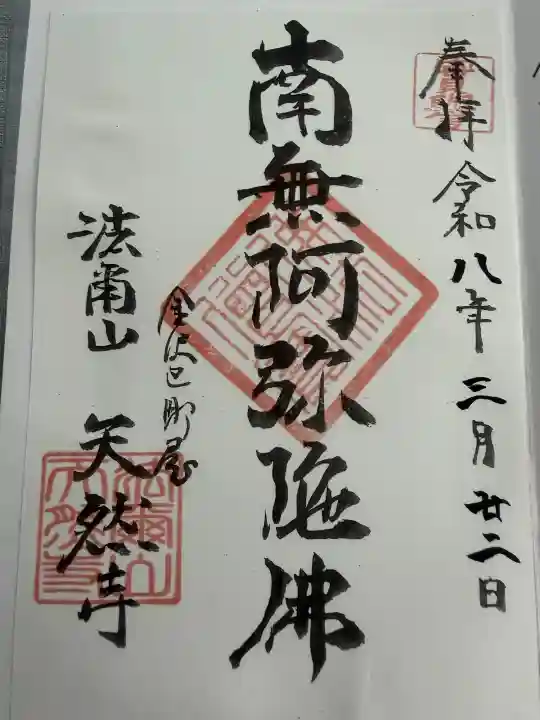 奉拝
令和八年三月廿二日
南無阿弥陀佛
法爾山
天然寺